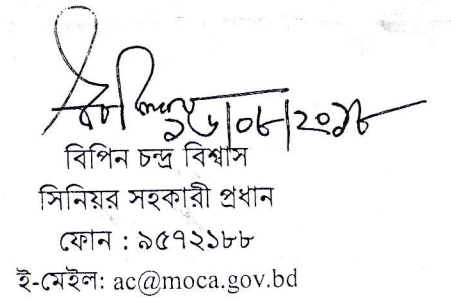 ২৬/০৮/২০১৮
বিপিন চন্দ্র বিশ্বাস
সিনিয়র সহকারী প্রধান
ফোন : ৯৫৭২১৮৮
ই-মেইল: ac@moca.gov.bd